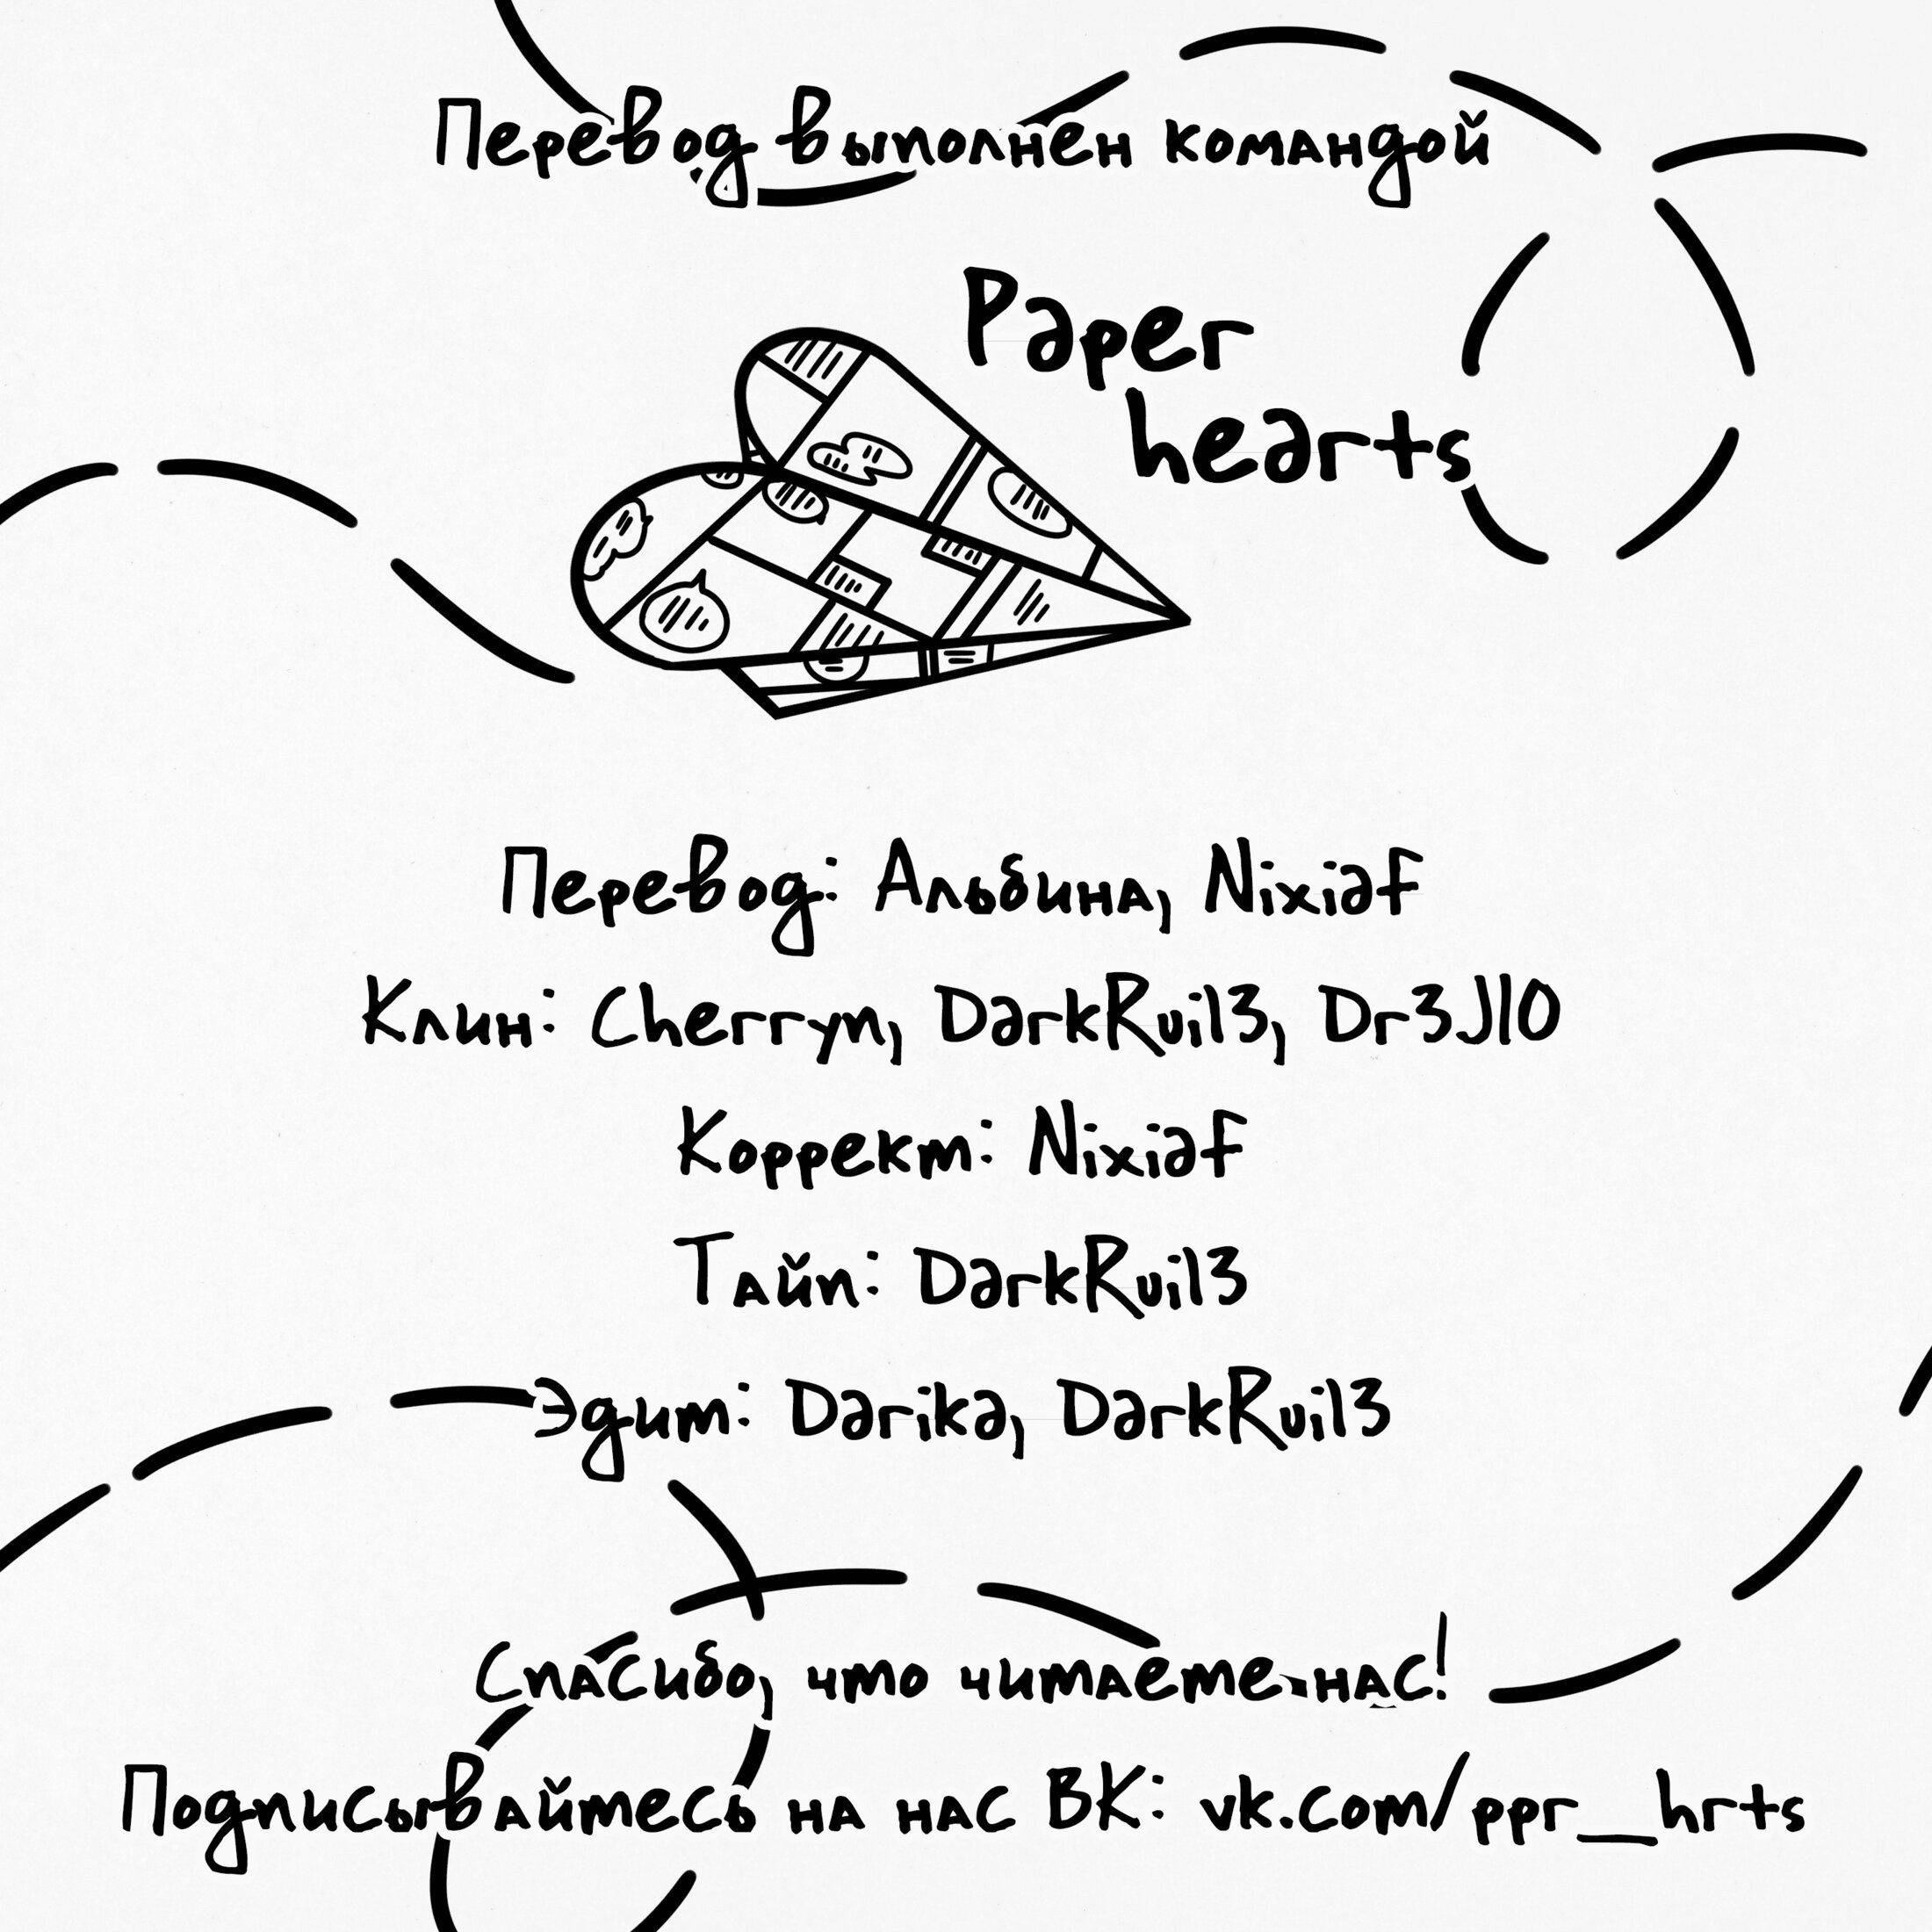 Перевод выполнен командой
Paper
hearts
Перевод: Альбина, Nixiaf
Клин: Cherryn, DarkRuil3, Dr3Jl0
Коррект: Nixiaf
Тайп: DarkRuil3
Эдит: Darika, DarkRuil3
Спасибо, что читаете нас!
Подписывайтесь на нас ВК: vk.com/ppr__hrts